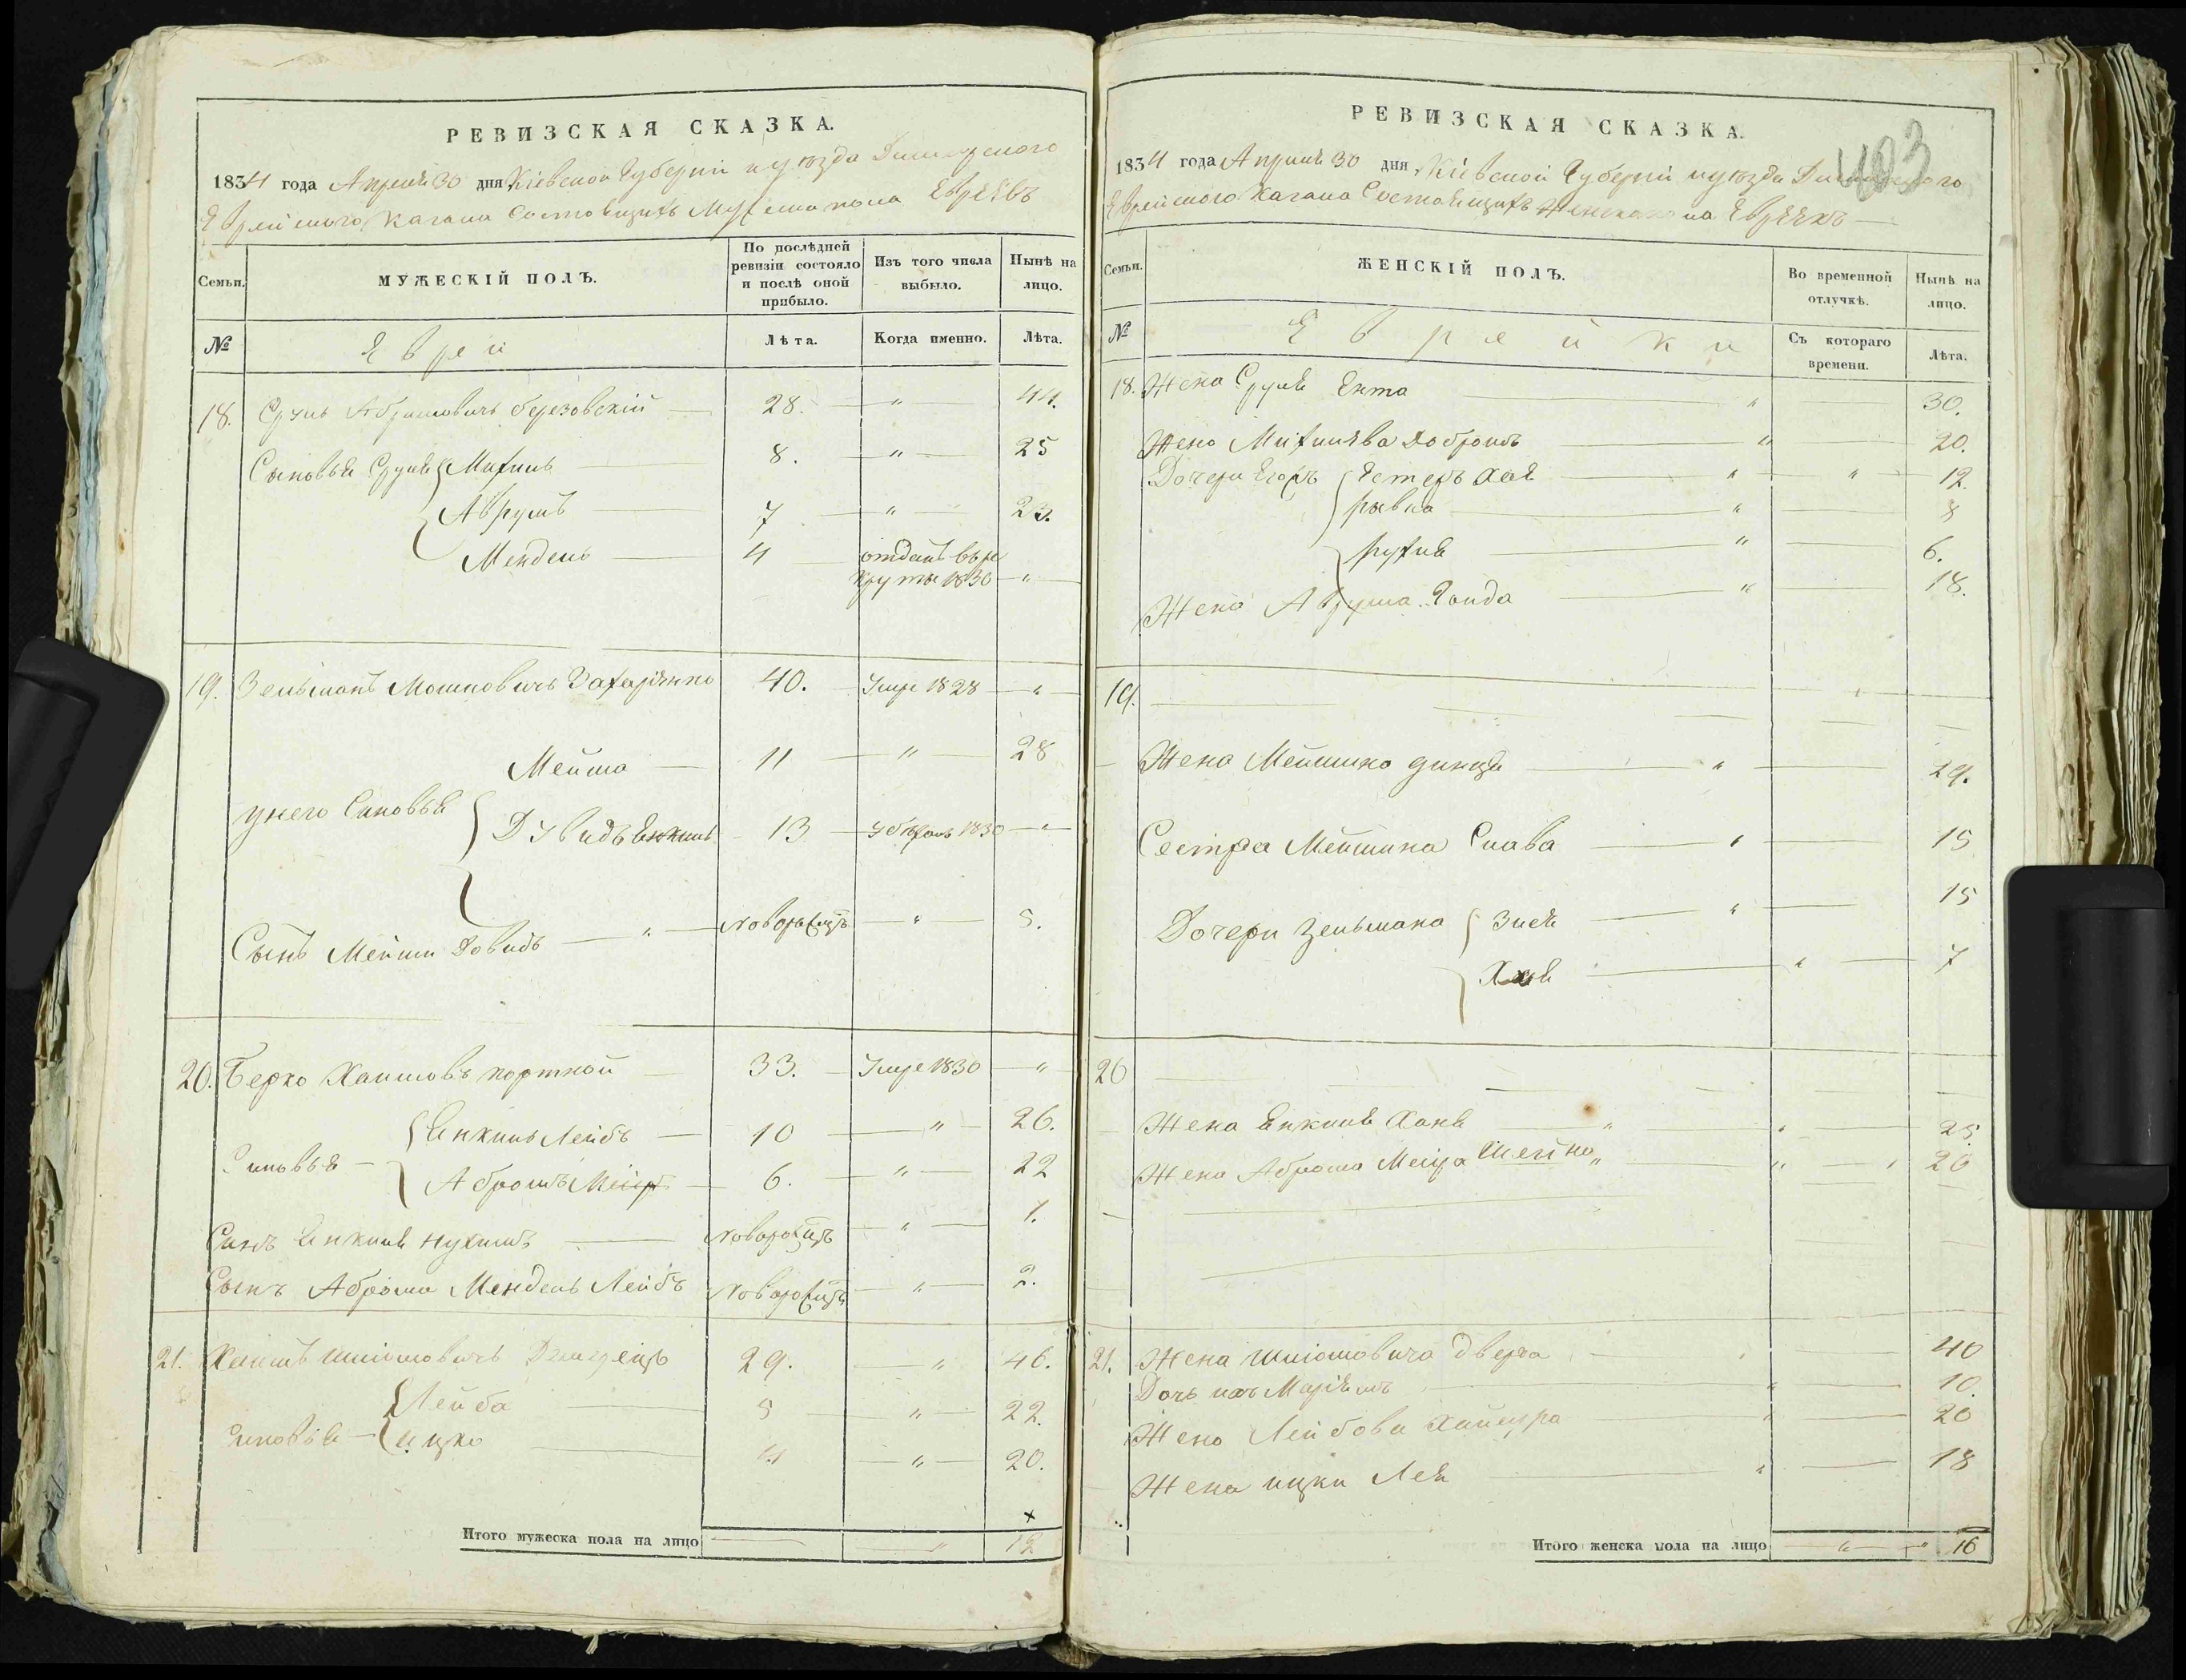 РЕВИЗСКАЯ СКАЗКА.
1834 года Апреля 30 дня Кіевской Губерніи и уѣзда Дымерского
Еврейского Кагала Состоящихъ Мужеска пола Евреѣвъ
Семьи.
МУЖЕСКІЙ ПОЛЪ.
По послѣдней ревизіи состояло и послѣ оной прибыло.
Изъ того числа выбыло.
Нынѣ на лицо.
№
Евреи
Лѣта.
Когда именно.
Лѣта.
18. Сруль Абрамовичь березовскій 28. " 44.
Сыновья Сруля Михиль 8. " 25
Аврумъ 7 " 23.
Мендель 4 отданъ въ ре
круты 1830 "
19. Зельманъ Мошковичь Захарѣнко 40. Умре 1828 "
Мейша 11 " 28
у него Сыновья
Дувидъ Янкель 13 1830 "
Сынъ Мейши Довидъ " Новорожцъ " 5.
20. Берко Хаимовъ портной 33. Умре 1830 "
Янкиль Лейбъ 10 " 26.
Сыновья
Абромъ Меіеръ 6. " 22
Сынъ Янкиля Нухимъ Новорожцъ " 1.
Сынъ Аброма Мендель Лейбъ Новорожцъ " 2.
21. Хаимъ Шліомовичь 29. " 46.
Лейба 5 " 22.
Сыновья
Ицко 4 " 20.
х
Итого мужеска пола на лицо " 12
РЕВИЗСКАЯ СКАЗКА.
403
1834 года Апреля 30 дня Кіевской Губерніи и уѣзда Дымерского
Еврейского Кагала Состоящихъ Женскаго пола Евреѣкъ
Семьи.
ЖЕНСКІЙ ПОЛЪ.
Во временной отлучкѣ.
Нынѣ на лицо.
№
Еврейки
Съ котораго времени.
Лѣта.
18. Жена Сруля Ента " 30.
Жена Михилѣва Добрышъ " 20.
Дочери Егоръ Естеръ Хая " " 12.
рывка " 8
рухля " 6.
Жена Аврума Голда " 18.
19. "
Жена Мейшина динця " 29.
Сестра Мейшина Слава " 15
Дочери Зельмана Зися " 15
Хая " 7
20
Жена Янкиля Хана " " 25.
Жена Аброма Меіра Шейна " " 20
21. Жена Шліомовича Двера 40
Дочь ихъ Маріямъ " 10.
Жена Лейбова " 20
Жена ицки Лея " 18
Итого женска пола на лицо " " 16